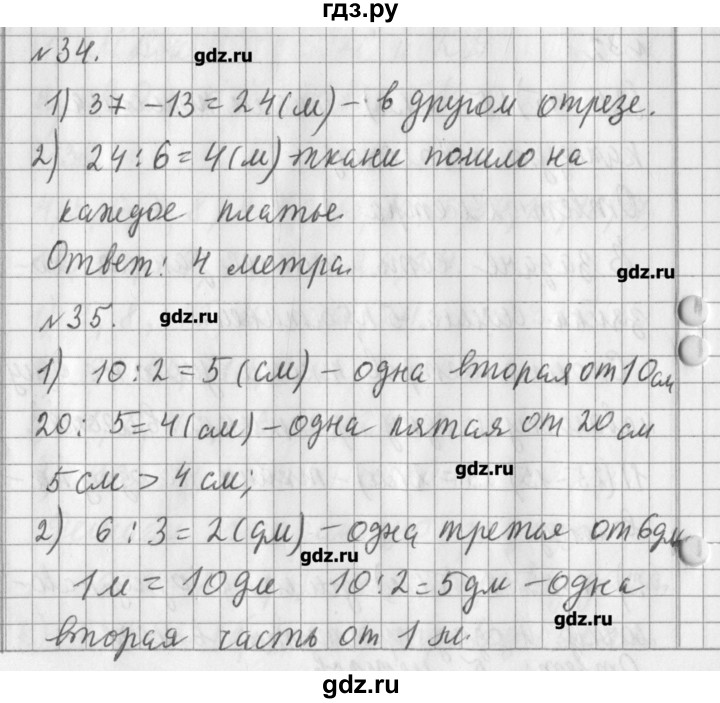 гдз.ру
№34. gdz.ru
1) 37 - 13 = 24 (м) - в другом отрезе.
2) 24 : 6 = 4 (м) - ткани пошло на
каждое платье.
Ответ: 4 метра. gdz.ru
№35. gdz.ru
1) 10 : 2 = 5 (см) - одна вторая от 10 см
20 : 5 = 4 (см) - одна пятая от 20 см
5 см > 4 см; gdz.ru
2) 6 : 3 = 2 (дм) - одна третья от 6 дм
gdz.ru
1 м = 10 дм 10 : 2 = 5 дм - одна
вторая часть от 1 м. gdz.ru
gdz.ru